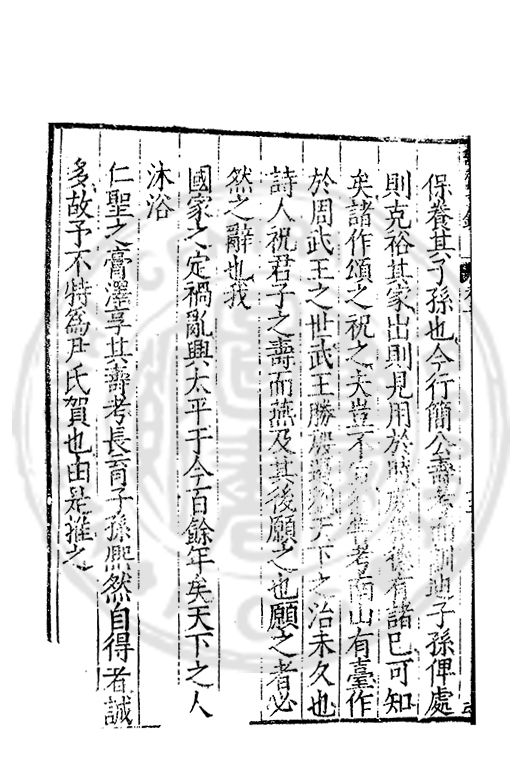 保養其子孫也今行簡公壽考而訓迪子孫俾處
則克裕其家出則見用於時勝後有諸已可知
矣諸作頌之祝之夫豈不宜考南山有臺作
於周武王之世武王勝殷遏劉天下之治未久也
詩人祝君子之壽而燕及其後願之也願之者必
然之辭也我
國家之定禍亂興太平于今百餘年矣天下之人
沐浴
仁聖之膏澤享其壽考長育子孫熙然自得者誠
多故予不特為尹氏賀也由是推之